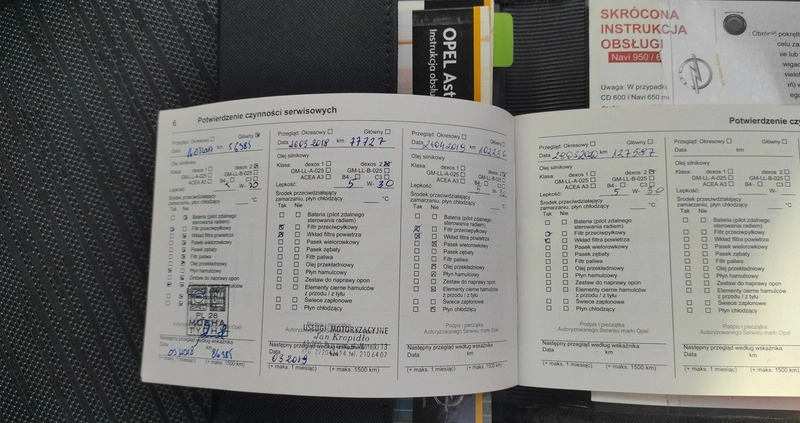 OPEL Ast
Instrukcja obsług
SKRÓCONA
INSTRUKCJA
OBSŁUGI
Navi 950 / 6
Uwaga: W przypadku
CD 600 i Navi 650 m
Obrócić pokrętł
celu za
6 Potwierdzenie czynności serwisowych
Przegląd: Okresowy Główny
Data km 56985
Olej silnikowy
Klasa: dexos 1 dexos 2
GM-LL-A-025 GM-LL-B-025
ACEA A3 B4 C3
Lepkość: 5 W- 30
Środek przeciwdziałający
zamarzaniu, płyn chłodzący °C
Tak Nie
Bateria (pilot zdalnego
sterowania radiem)
Filtr przeciwpyłkowy
Wkład filtra powietrza
Pasek wielorowkowy
Pasek zębaty
Filtr paliwa
Olej przekładniowy
Płyn hamulcowy
Zestaw do naprawy opon
PL 28
MOSHA
Następny przegląd według wskaźnika
Data km
(+ maks. 1 miesiąc) (+ maks. 1500 km)
Przegląd: Okresowy Główny
Data 26.05 2018 km 77727
Olej silnikowy
Klasa: dexos 1 dexos 2
GM-LL-A-025 GM-LL-B-025
ACEA A3 B4 - C3
Lepkość: 5 W- 30
Środek przeciwdziałający
zamarzaniu, płyn chłodzący °C
Tak Nie
Bateria (pilot zdalnego
sterowania radiem)
Filtr przeciwpyłkowy
Wkład filtra powietrza
Pasek wielorowkowy
Pasek zębaty
Filtr paliwa
Olej przekładniowy
Płyn hamulcowy
Zestaw do naprawy opon
Elementy cierne hamulców
z przodu / z tyłu
Świece zapłonowe
Płyn chłodzący
USŁUGI MOTORYZACYJNE
Jan Kropidło
Następny przegląd według wskaźnika
Data
05 2019
(+ maks. 1 miesiąc) (+ maks. 1500 km)
Przegląd: Okresowy Główny
Data km
Olej silnikowy
Klasa: dexos 1 dexos 2
GM-LL-A-025 GM-LL-B-025
ACEA A3 B4 - C3
Lepkość: 5 W- 30
Środek przeciwdziałający
zamarzaniu, płyn chłodzący °C
Tak Nie
Bateria (pilot zdalnego
sterowania radiem)
Filtr przeciwpyłkowy
Wkład filtra powietrza
Pasek wielorowkowy
Pasek zębaty
Filtr paliwa
Olej przekładniowy
Płyn hamulcowy
Zestaw do naprawy opon
Elementy cierne hamulców
z przodu / z tyłu
Świece zapłonowe
Płyn chłodzący
Podpis i pieczątka
Autoryzowanego Serwisu marki Opel
Następny przegląd według wskaźnika
Data km
(+ maks. 1 miesiąc) (+ maks. 1500 km)
Potwierdzenie czy
Przegląd: Okresowy Główny
Data km 127587
Olej silnikowy
Klasa: dexos 1 dexos 2
GM-LL-A-025 GM-LL-B-025
ACEA A3 B4 - C3
Lepkość: 5 W- 30
Środek przeciwdziałający
zamarzaniu, płyn chłodzący °C
Tak Nie
Bateria (pilot zdalnego
sterowania radiem)
Filtr przeciwpyłkowy
Wkład filtra powietrza
Pasek wielorowkowy
Pasek zębaty
Filtr paliwa
Olej przekładniowy
Płyn hamulcowy
Zestaw do naprawy opon
Elementy cierne hamulców
z przodu / z tyłu
Świece zapłonowe
Płyn chłodzący
Podpis i pieczątka
Autoryzowanego Serwisu marki Opel
Następny przegląd według wskaźnika
Data km
(+ maks. 1 miesiąc) (+ maks. 1500 km)
Przegląd: Okresowy
Data km
Olej silnikowy
Klasa: dexos 1
GM-LL-A-025
ACEA A3
Lepkość:
Środek przeciwdziałający
zamarzaniu, płyn chłodzący
Tak Nie
Bateria (pilot
sterowania
Filtr przeciwpyłk
Wkład filtra pow
Pasek wielorow
Pasek zębaty
Filtr paliwa
Olej przekładni
Płyn hamulcow
Zestaw do nap
Elementy ciern
z przodu / z ty
Świece zapłon
Płyn chłodząc
Podpi
Autoryzowanego
Następny przegląd we
Data
(+ maks. 1 miesiąc)